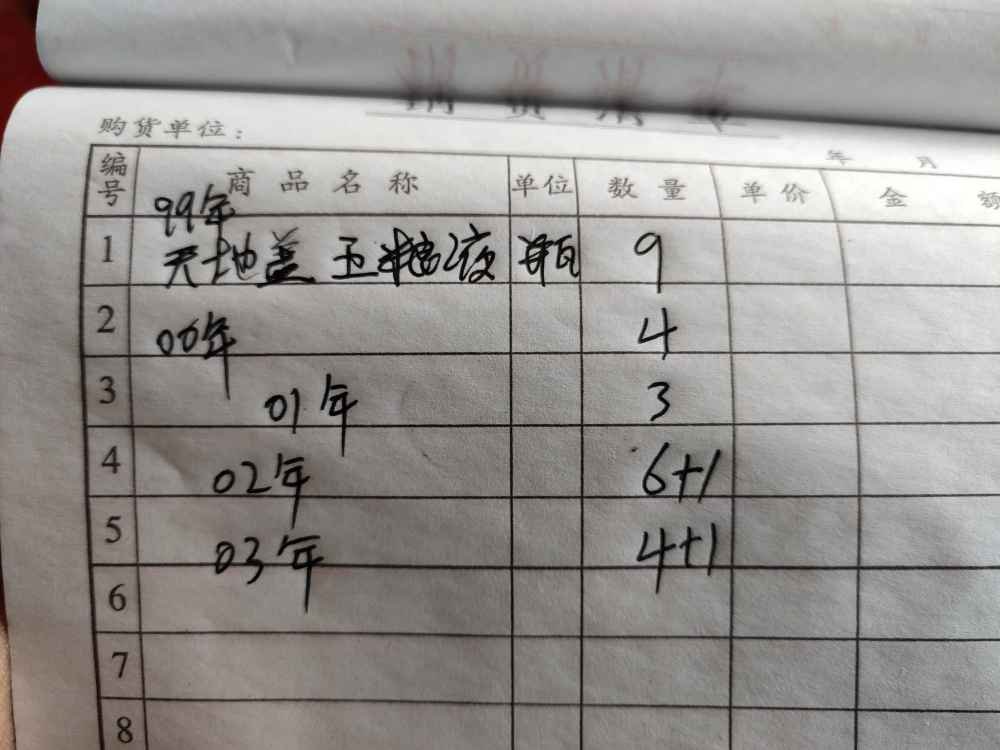 购货单位：
年 月
编号 商品名称 单位 数量 单价 金额
99年
1 天地盖 玉精液 瓶 9
2 00年 4
3 01年 3
4 02年 6+1
5 03年 4+1
6
7
8